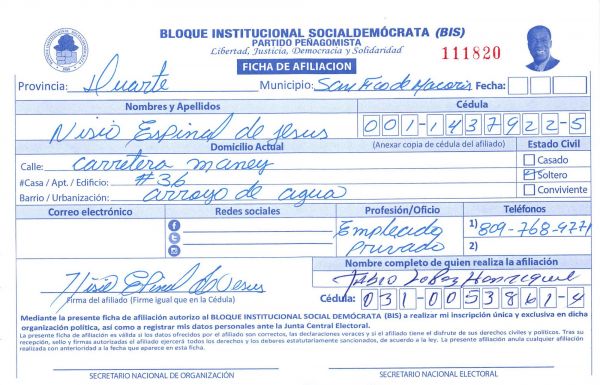 BLOQUE INSTITUCIONAL SOCIALDEMÓCRATA (BIS)
PARTIDO PEÑAGOMISTA
Libertad, Justicia, Democracia y Solidaridad
FICHA DE AFILIACION
111820
Provincia: Duarte Municipio: San Fco de Macoris Fecha:
Nombres y Apellidos Cédula
Nisio Espinal de Jesus 001-1437922-5
Domicilio Actual (Anexar copia de cédula del afiliado) Estado Civil
Calle: carretera maney Casado
#Casa / Apt. / Edificio: #36 Soltero
Barrio / Urbanización: arroyo de agua Conviviente
Correo electrónico Redes sociales Profesión/Oficio Teléfonos
Emplecido Privado
1) 809-768-9771
2)
Nombre completo de quien realiza la afiliación
Nisio Espinal de Jesus
Firma del afiliado (Firme igual que en la Cédula)
Cédula: 031-0053861-4
Mediante la presente ficha de afiliación autorizo al BLOQUE INSTITUCIONAL SOCIAL DEMÓCRATA (BIS) a realizar mi inscripción única y exclusiva en dicha
organización política, así como a registrar mis datos personales ante la Junta Central Electoral.
La presente ficha de afiliación es válida si los datos ofrecidos por el afiliado son correctos, las declaraciones veraces y si el afiliado tiene el disfrute de sus derechos civiles y políticos. Tras su
recepción, sello y firmas autorizadas el afiliado ejercerá todos los derechos y los deberes estatutariamente sancionados, de acuerdo a la ley. La presente afiliación anula cualquier afiliación
realizada con anterioridad a la fecha que aparece en esta ficha.
SECRETARIO NACIONAL DE ORGANIZACIÓN SECRETARIO NACIONAL ELECTORAL